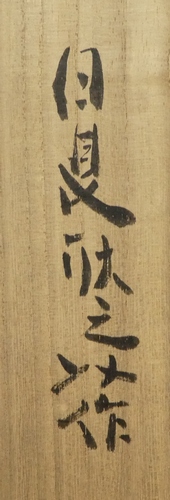 日夏耿之介作